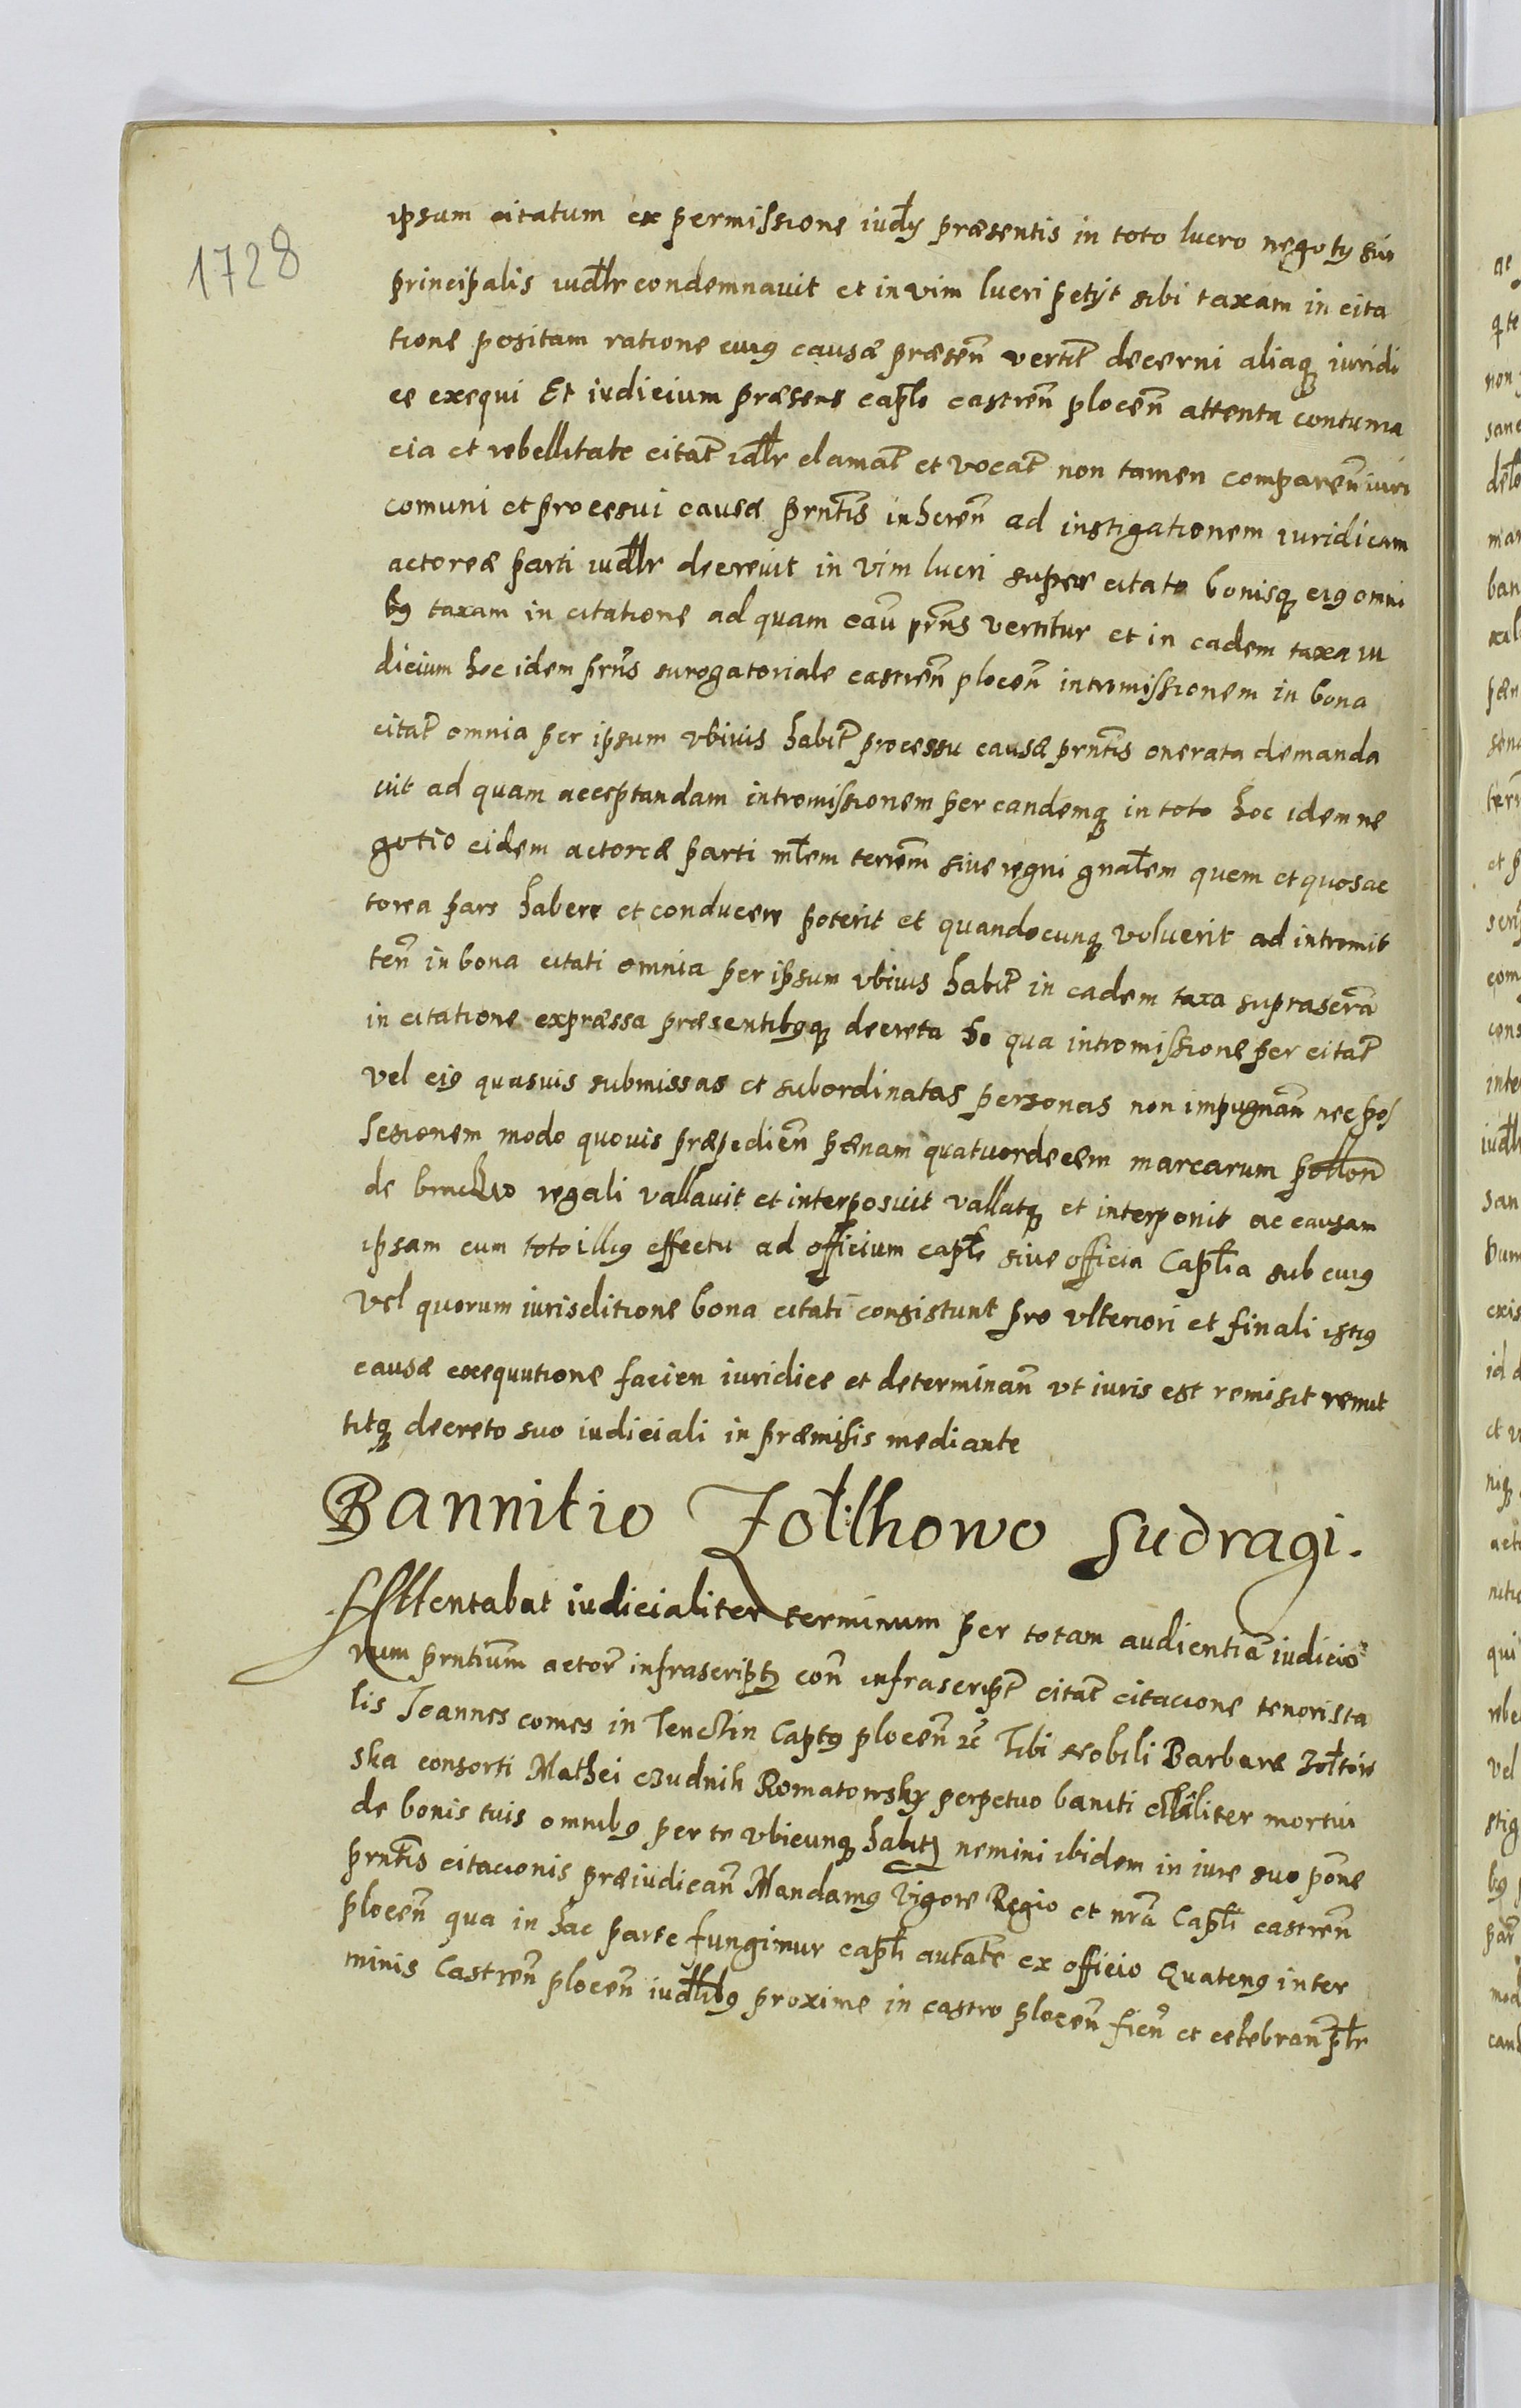 1728
ipsum citatum ex permissione iudÿ præsentis in toto lucro negotÿ sui
principalis iudłr condemnavit et in vim lucri petÿt sibi taxam in cita
tione positam ratione cuiꝰ causæ præsen̄ vertit̄ decerni aliaqꝫ iuridi
ce exequi Et iudicium præsens capłe castren̄ plocen̄ attenta contuma
cia et rebellitate citat̄ idłr clamat̄ et vocat̄ non tamen comparen̄ iuri
comuni et processui causæ prnt̄is inheren̄ ad instigationem iuridicam
actoreæ parti iudłr decrevit in vim lucri super citato bonisqꝫ eiꝰ omni
bꝰ taxam in citatione ad quam caū prn̄s vertitur et in eadem taxa iu
dicium hoc idem prn̄s surogatoriale castren̄ plocen̄ intromissionem in bona
citat̄ omnia per ipsum vbiuis habit̄ processu causæ prnt̄is onerata demanda
uit ad quam acceptandam intromissionem per eandemqꝫ in toto hoc idem ne
gotio eidem actoreæ parti młem terrem̄ siue regni gnałem quem et quos ac
torea pars habere et conducere poterit et quandocunqꝫ voluerit ad intromit
ten̄ in bona citati omnia per ipsum vbiuis habit̄ in eadem taxa suprascrā
in citatione expræssa præsentibꝰqꝫ decreta De qua intromissione per citat̄
vel eiꝰ quasuis submissas et subordinatas personas non impugnan̄ nec pos
sesionem modo quouis præpedien̄ pænam quatuordecem marcarum pollon̄
de brachio regali vallauit et interposuit vallatqꝫ et interponit ac causam
ipsam cum toto illiꝰ effectu ad officium capłe siue officia Capłia sub cuiꝰ
vel quorum iurisditione bona citati consistunt pro vlteriori et finali istiꝰ
causæ exequutione facien iuridice et determinan̄ vt iuris est remisit remit
titqꝫ decreto suo iudiciali in præmisis mediante
Bannitio Zoł:lhowo Sudragi.
Attentabat iudicialiter terminum per totam audientiā iudicio
rum prntium̄ actor̄ infrascriptꝰ con̄ infrascript̄ citat̄ citacione tenoris ta
lis Joannes comes in Tenchin Captꝰ plocen̄ ꝛc̄ Tibi Nobili Barbaræ Zołtow
ska consorti Mathei czudnik Romatowsky perpetuo baniti ciuiliter mortui
de bonis tuis omnibꝰ per te vbicunqꝫ habitꝫ nemini ibidem in iure suo pōne
prnt̄is citacionis præiudican̄ Mandamꝰ Vigore Regio et nrā Capłi castren̄
plocen̄ qua in hac parte fungimur capłi autatē ex officio Quatenꝰ in ter
minis Castren̄ plocen̄ iudłibꝰ proxime in castro plocen̄ fien̄ et celebran̄ płr